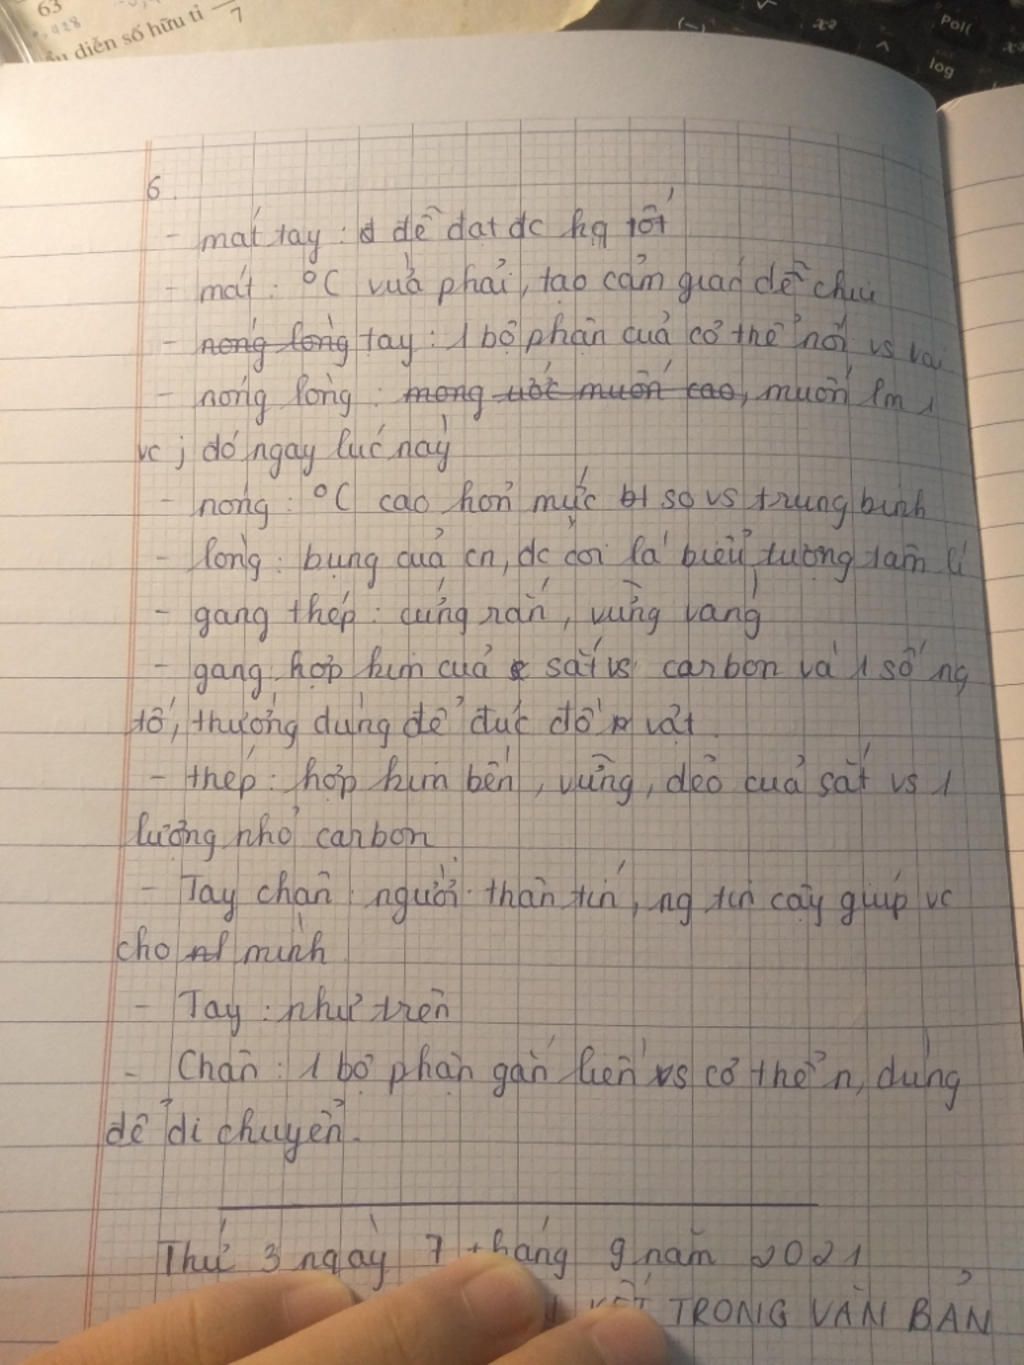 63
7
diễn số hữu tỉ
(−)
x²
^
Pol(
log
6.
- mát tay : dễ đạt đc kq tốt
- mát : °C vừa phải, tạo cảm giác dễ chịu
- nóng lòng tay : 1 bộ phận của cơ thể nối vs vai
- nóng lòng : mong ước muốn cao, muốn lm 1
vc j đó ngay lúc này
- nóng : °C cao hơn mức bt so vs trung bình
- lòng : bụng của cn, đc coi là biểu tượng tâm lí
- gang thép : cứng rắn, vững vàng
- gang : hợp kim của sắt vs carbon và 1 số ng
tố, thường dùng để đúc đồ vật.
- thép : hợp kim bền, vững, dẻo của sắt vs 1
lượng nhỏ carbon
- Tay chân : người thân tín, ng tin cậy giúp vc
cho mình
- Tay : như trên
- Chân : 1 bộ phận gắn liền vs cơ thể n, dùng
để di chuyển.
Thứ 3 ngày 7 tháng 9 năm 2021
KẾT TRONG VĂN BẢN